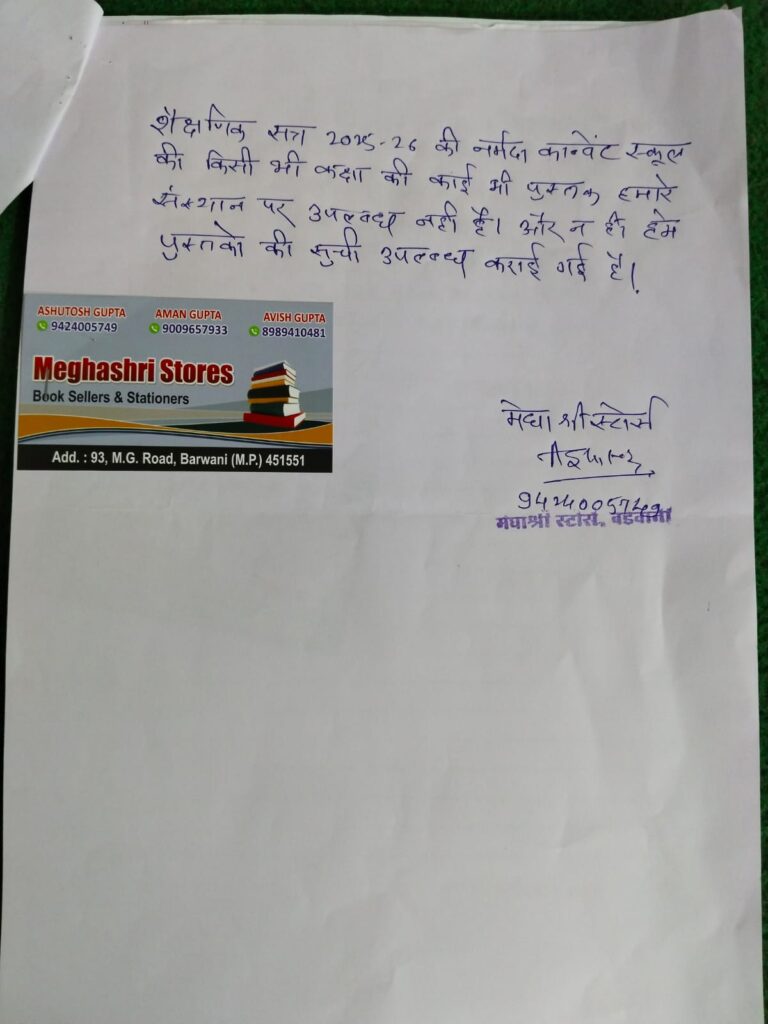 शैक्षणिक सत्र 2025-26 की नर्मदा कान्वेंट स्कूल
की किसी भी कक्षा की काई भी पुस्तक हमारे
संस्थान पर उपलब्ध नही है। और न ही हमे
पुस्तको की सुची उपलब्ध कराई गई है।
ASHUTOSH GUPTA AMAN GUPTA AVISH GUPTA
9424005749 9009657933 8989410481
Meghashri Stores
Book Sellers & Stationers
Add. : 93, M.G. Road, Barwani (M.P.) 451551
मेघा श्री स्टोर्स
9424005749
मेघाश्री स्टोर्स, बड़वानी